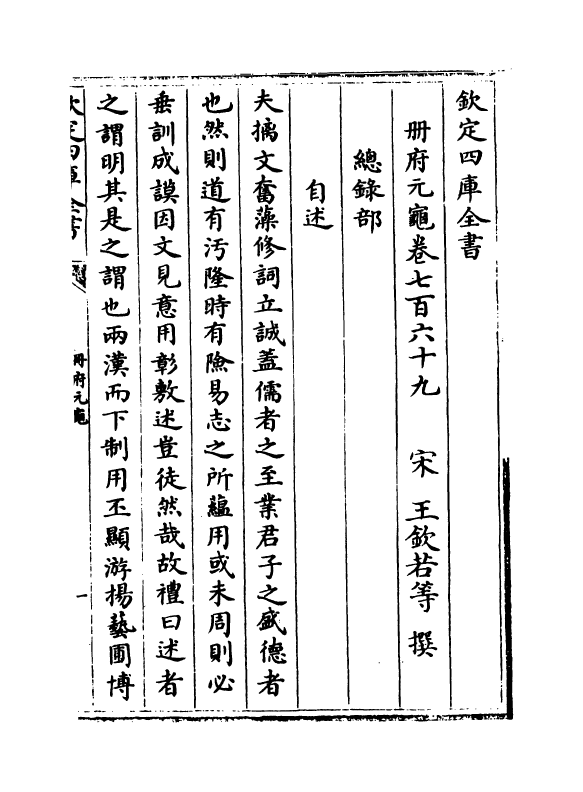 欽定四庫全書
冊府元龜卷七百六十九 宋 王欽若等 撰
總錄部
自述
夫摛文奮藻修詞立誠蓋儒者之至業君子之盛德者
也然則道有汚隆時有險易志之所蘊用或未周則必
垂訓成謨因文見意用彰敷述豈徒然哉故禮曰述者
之謂明其是之謂也兩漢而下制用丕顯游揚藝圃博
欽定四庫全書
冊府元龜
一